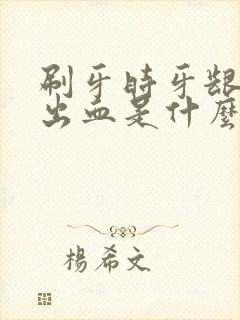 刷牙時牙齦
出血是什麼
楊希文